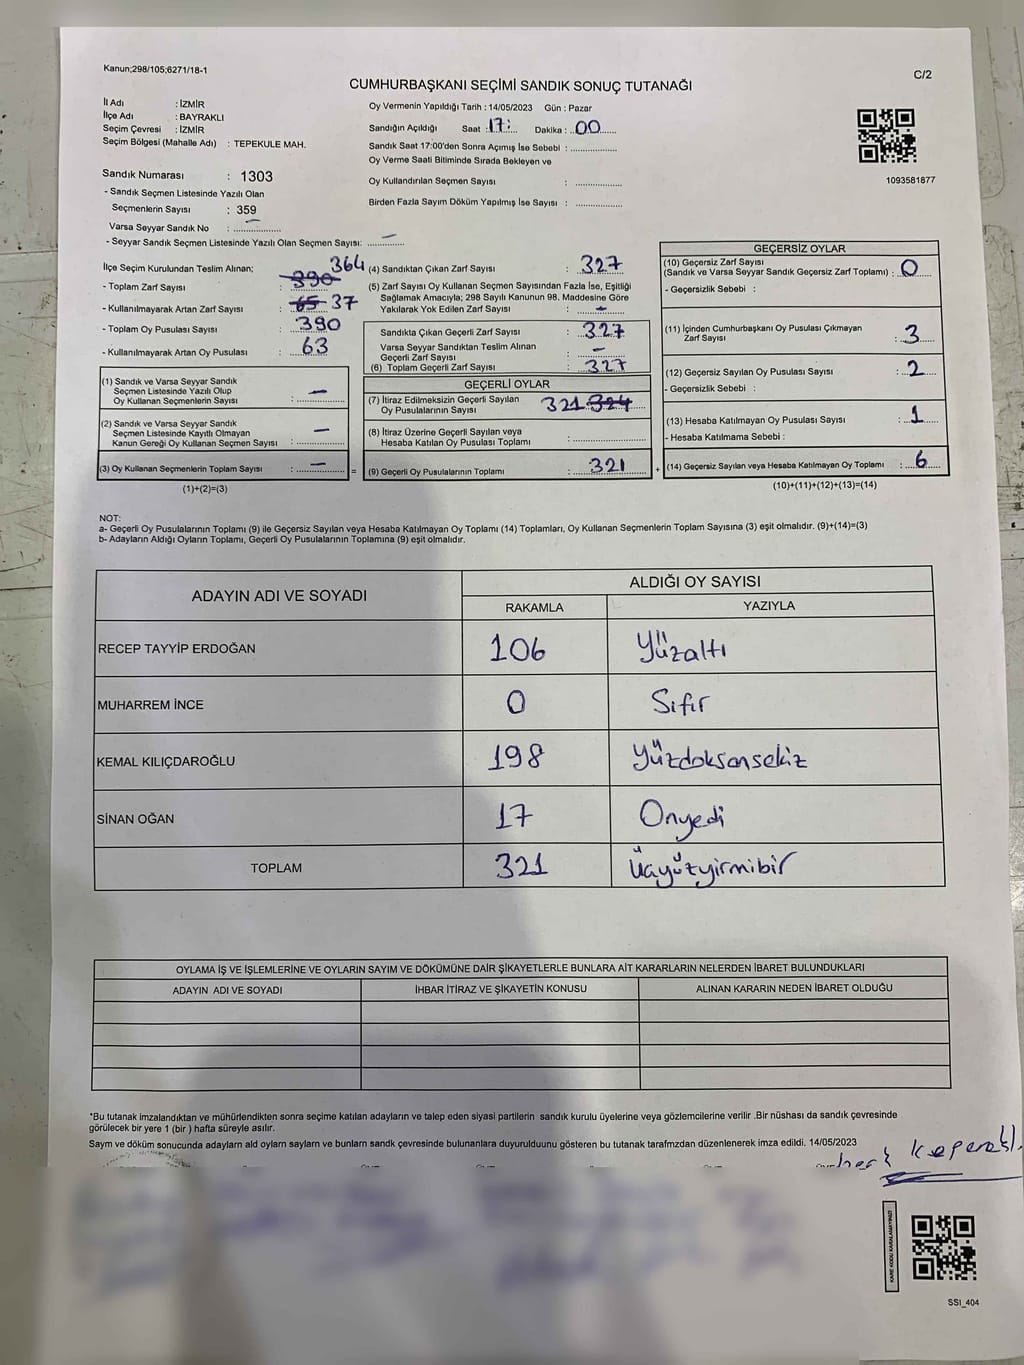 Kanun;298/105;6271/18-1
C/2
CUMHURBAŞKANI SEÇİMİ SANDIK SONUÇ TUTANAĞI
İl Adı : İZMİR
İlçe Adı : BAYRAKLI
Seçim Çevresi : İZMİR
Seçim Bölgesi (Mahalle Adı) : TEPEKULE MAH.
Sandık Numarası : 1303
- Sandık Seçmen Listesinde Yazılı Olan
Seçmenlerin Sayısı : 359
Varsa Seyyar Sandık No : –
- Seyyar Sandık Seçmen Listesinde Yazılı Olan Seçmen Sayısı: –
Oy Vermenin Yapıldığı Tarih : 14/05/2023 Gün : Pazar
Sandığın Açıldığı Saat : 17: Dakika : 00
Sandık Saat 17:00'den Sonra Açımış İse Sebebi :
Oy Verme Saati Bitiminde Sırada Bekleyen ve
Oy Kullandırılan Seçmen Sayısı :
Birden Fazla Sayım Döküm Yapılmış İse Sayısı :
1093581877
İlçe Seçim Kurulundan Teslim Alınan;
- Toplam Zarf Sayısı : 390 364
- Kullanılmayarak Artan Zarf Sayısı : 65 37
- Toplam Oy Pusulası Sayısı : 390
- Kullanılmayarak Artan Oy Pusulası : 63
(1) Sandık ve Varsa Seyyar Sandık
Seçmen Listesinde Yazılı Olup
Oy Kullanan Seçmenlerin Sayısı : –
(2) Sandık ve Varsa Seyyar Sandık
Seçmen Listesinde Kayıtlı Olmayan
Kanun Gereği Oy Kullanan Seçmen Sayısı : –
(3) Oy Kullanan Seçmenlerin Toplam Sayısı : –
(1)+(2)=(3)
(4) Sandıktan Çıkan Zarf Sayısı : 327
(5) Zarf Sayısı Oy Kullanan Seçmen Sayısından Fazla İse, Eşitliği
Sağlamak Amacıyla; 298 Sayılı Kanunun 98. Maddesine Göre
Yakılarak Yok Edilen Zarf Sayısı : –
Sandıkta Çıkan Geçerli Zarf Sayısı : 327
Varsa Seyyar Sandıktan Teslim Alınan
Geçerli Zarf Sayısı : –
(6) Toplam Geçerli Zarf Sayısı : 327
GEÇERLİ OYLAR
(7) İtiraz Edilmeksizin Geçerli Sayılan
Oy Pusulalarının Sayısı 321 324
(8) İtiraz Üzerine Geçerli Sayılan veya
Hesaba Katılan Oy Pusulası Toplamı :
= (9) Geçerli Oy Pusulalarının Toplamı : 321
GEÇERSİZ OYLAR
(10) Geçersiz Zarf Sayısı
(Sandık ve Varsa Seyyar Sandık Geçersiz Zarf Toplamı) : 0
- Geçersizlik Sebebi :
(11) İçinden Cumhurbaşkanı Oy Pusulası Çıkmayan
Zarf Sayısı : 3
(12) Geçersiz Sayılan Oy Pusulası Sayısı : 2
- Geçersizlik Sebebi :
(13) Hesaba Katılmayan Oy Pusulası Sayısı : 1
- Hesaba Katılmama Sebebi :
+ (14) Geçersiz Sayılan veya Hesaba Katılmayan Oy Toplamı : 6
(10)+(11)+(12)+(13)=(14)
NOT:
a- Geçerli Oy Pusulalarının Toplamı (9) ile Geçersiz Sayılan veya Hesaba Katılmayan Oy Toplamı (14) Toplamları, Oy Kullanan Seçmenlerin Toplam Sayısına (3) eşit olmalıdır. (9)+(14)=(3)
b- Adayların Aldığı Oyların Toplamı, Geçerli Oy Pusulalarının Toplamına (9) eşit olmalıdır.
ADAYIN ADI VE SOYADI ALDIĞI OY SAYISI
RAKAMLA YAZIYLA
RECEP TAYYİP ERDOĞAN 106 Yüzaltı
MUHARREM İNCE 0 Sıfır
KEMAL KILIÇDAROĞLU 198 Yüzdoksansekiz
SİNAN OĞAN 17 Onyedi
TOPLAM 321 Üçyüzyirmibir
OYLAMA İŞ VE İŞLEMLERİNE VE OYLARIN SAYIM VE DÖKÜMÜNE DAİR ŞİKAYETLERLE BUNLARA AİT KARARLARIN NELERDEN İBARET BULUNDUKLARI
ADAYIN ADI VE SOYADI İHBAR İTİRAZ VE ŞİKAYETİN KONUSU ALINAN KARARIN NEDEN İBARET OLDUĞU
*Bu tutanak imzalandıktan ve mühürlendikten sonra seçime katılan adayların ve talep eden siyasi partilerin sandık kurulu üyelerine veya gözlemcilerine verilir .Bir nüshası da sandık çevresinde
görülecek bir yere 1 (bir ) hafta süreyle asılır.
Saym ve döküm sonucunda adaylarn ald oylarn saylarn ve bunlarn sandk çevresinde bulunanlara duyurulduunu gösteren bu tutanak tarafmzdan düzenlenerek imza edildi. 14/05/2023
KARE KODU KARALAMAYINIZ!
SSI_404